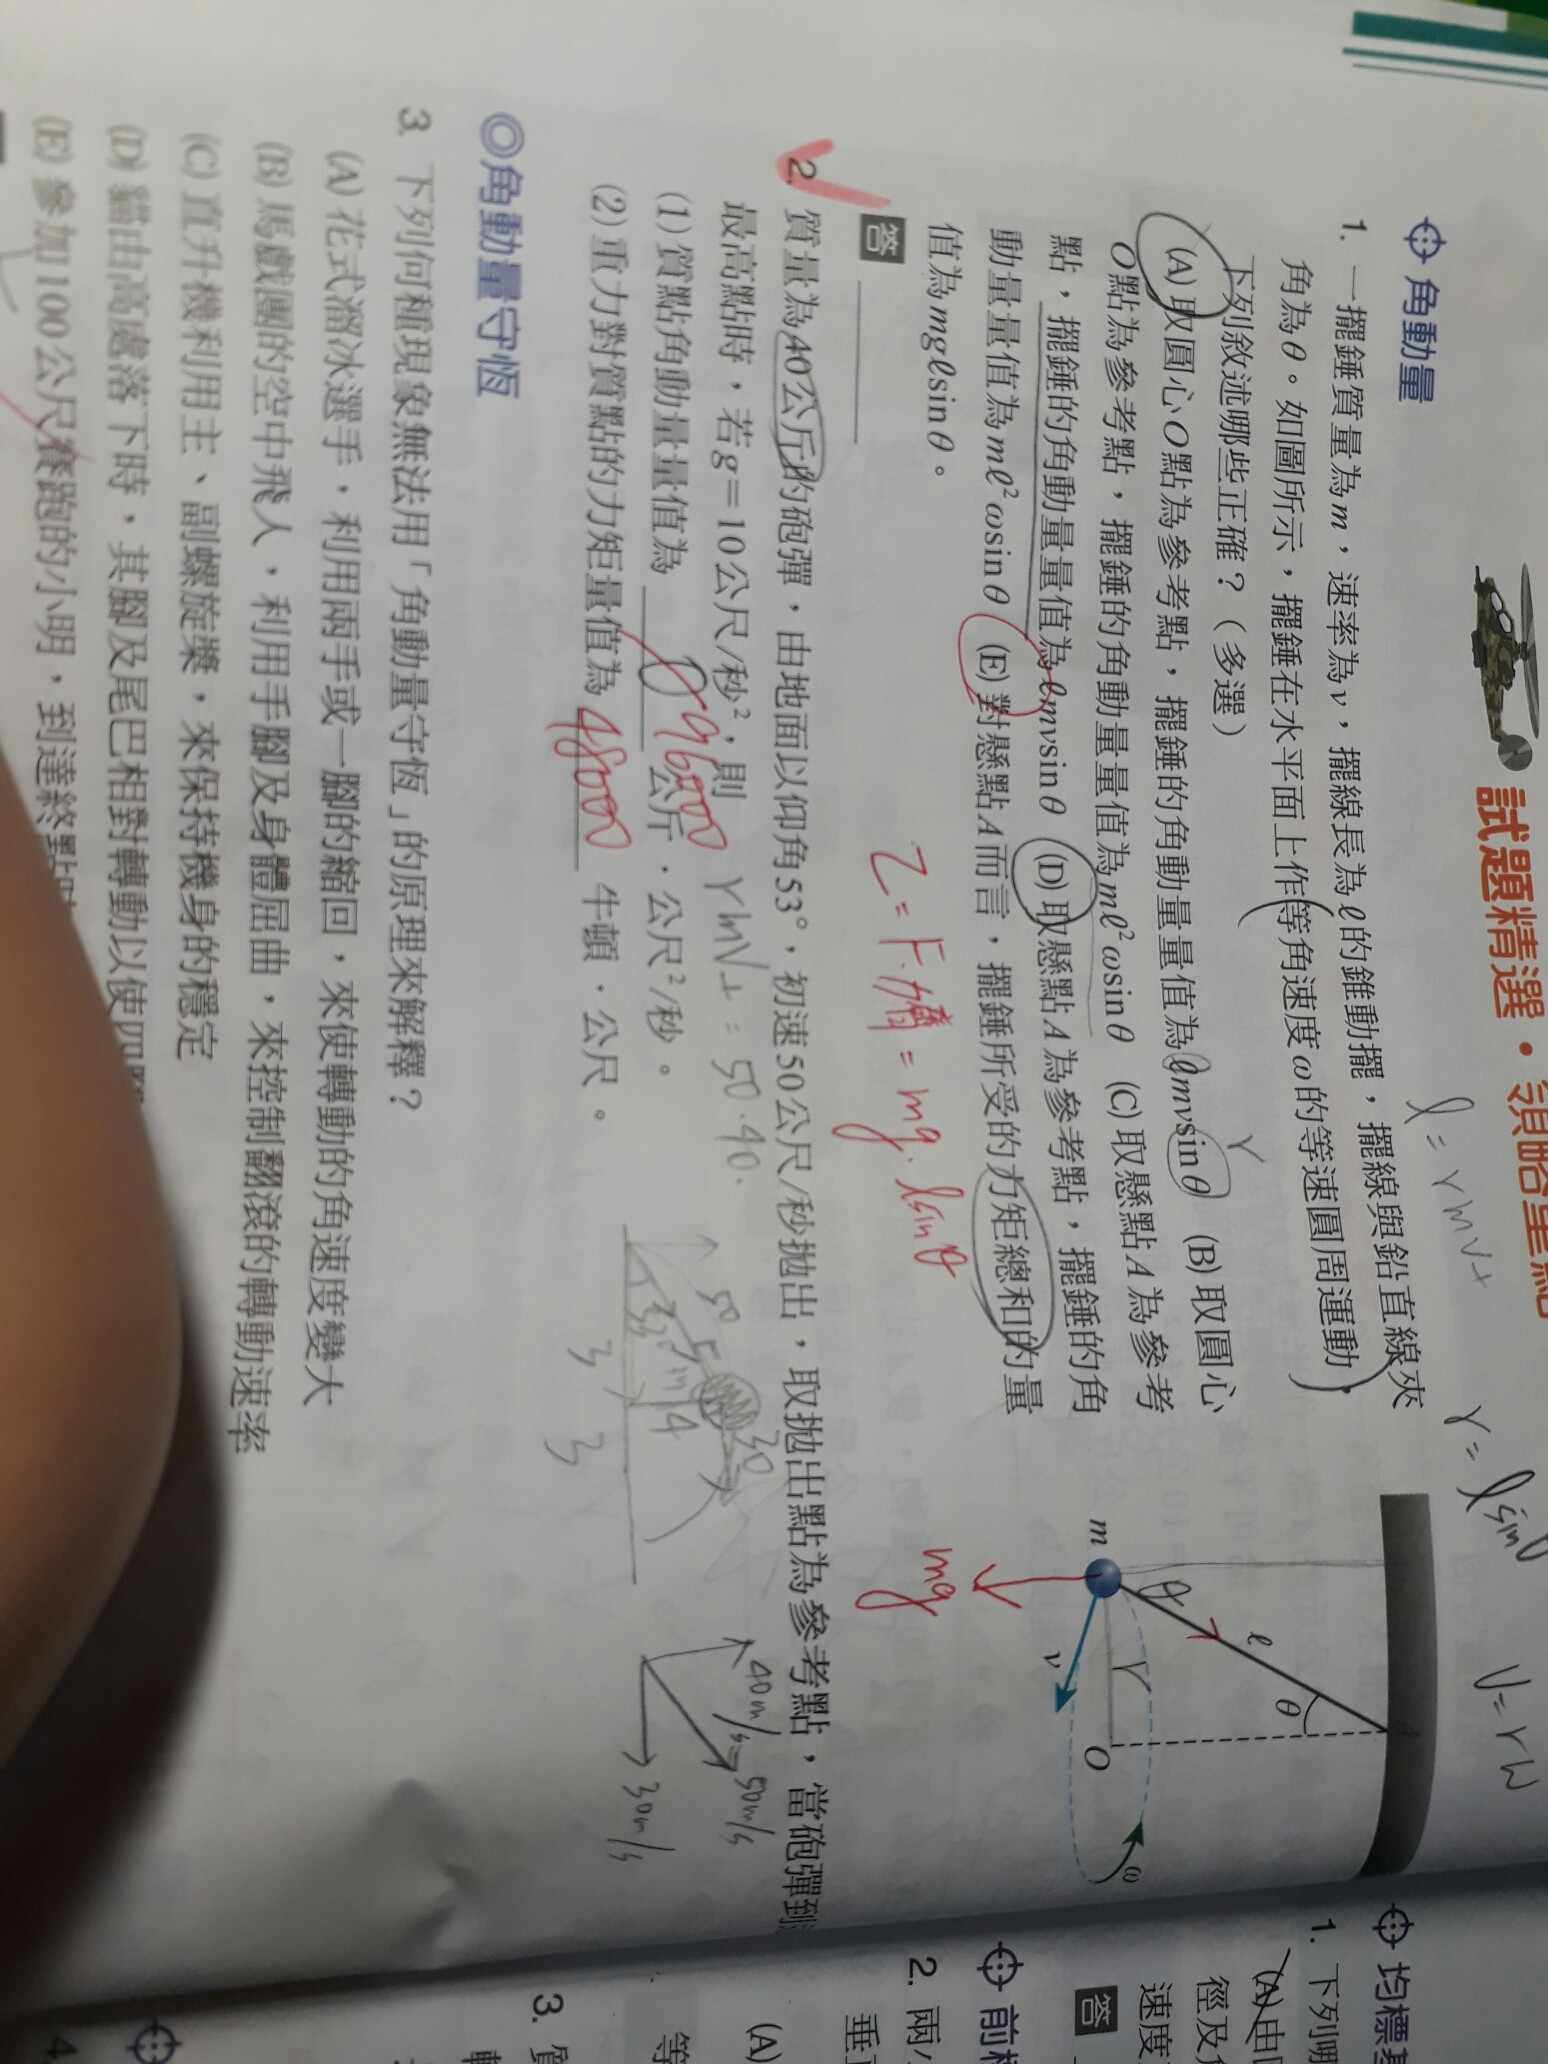 試題精選・領略重點
ℓ = rmv⊥
r = ℓsinθ
v = rw
角動量
1. 一擺錘質量為m，速率為v，擺線長為ℓ的錐動擺，擺線與鉛直線夾
角為θ。如圖所示，擺錘在水平面上作等角速度ω的等速圓周運動，
下列敘述哪些正確？（多選）
(A)取圓心O點為參考點，擺錘的角動量量值為ℓmvsinθ (B)取圓心
O點為參考點，擺錘的角動量量值為mℓ²ωsinθ (C)取懸點A為參考
點，擺錘的角動量量值為ℓmvsinθ (D)取懸點A為參考點，擺錘的角
動量量值為mℓ²ωsinθ (E)對懸點A而言，擺錘所受的力矩總和的量
值為mgℓsinθ。
答
r
A
θ
ℓ
θ
r
m
O
v
ω
mg
= mg · ℓsinθ
2. 質量為40公斤的砲彈，由地面以仰角53°，初速50公尺/秒拋出，取拋出點為參考點，當砲彈到
最高點時，若g＝10公尺/秒²，則
(1)質點角動量量值為 96000 公斤・公尺²/秒。
(2)重力對質點的力矩量值為 48000 牛頓・公尺。
rmv⊥ = 50·40·
50
5
4
30
3
3
40m/s
50m/s
30m/s
◎角動量守恆
3. 下列何種現象無法用「角動量守恆」的原理來解釋？
(A)花式溜冰選手，利用兩手或一腳的縮回，來使轉動的角速度變大
(B)馬戲團的空中飛人，利用手腳及身體屈曲，來控制翻滾的轉動速率
(C)直升機利用主、副螺旋槳，來保持機身的穩定
(D)貓由高處落下時，其腳及尾巴相對轉動以使四腳
(E)參加100公尺賽跑的小明，到達終點時
均標
1. 下列哪
(A)由
徑及
速度
答
前標
2. 兩小
垂
(A)
等
3. 質
4.